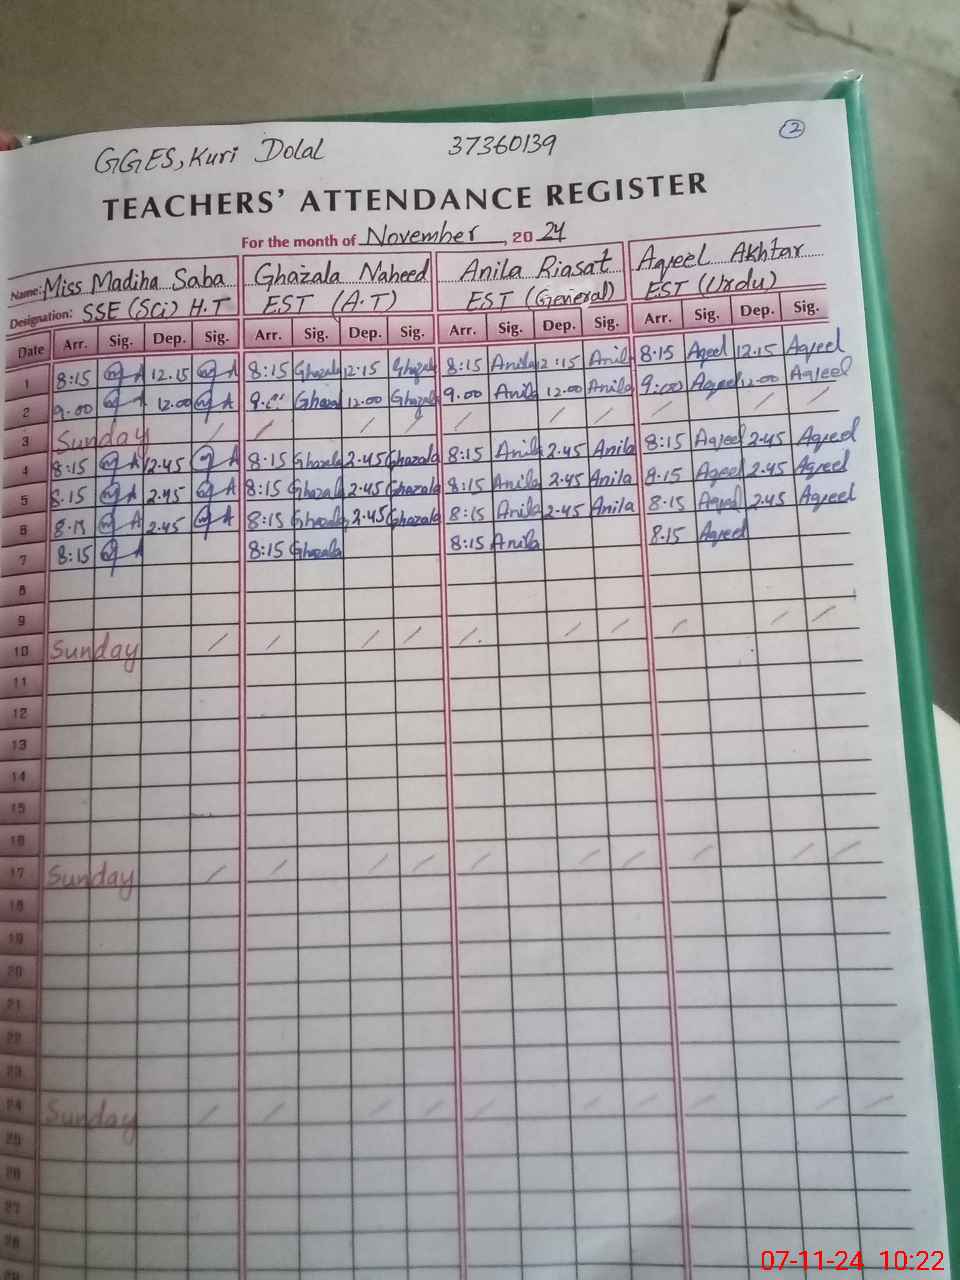 2
GGES, Kuri Dolal 37360139
TEACHERS' ATTENDANCE REGISTER
For the month of November, 2024
Name: Miss Madiha Saba Ghazala Naheed Anila Riasat Aqeel Akhtar
Designation: SSE (Sci) H.T EST (A.T) EST (General) EST (Urdu)
Date Arr. Sig. Dep. Sig. Arr. Sig. Dep. Sig. Arr. Sig. Dep. Sig. Arr. Sig. Dep. Sig.
1 8:15 12.15 8:15 Ghazala 12.15 Ghazala 8:15 Anila 12:15 Anila 8.15 Aqeel 12.15 Aqeel
2 9.00 12.00 Ghazala 12.00 Ghazala 9.00 Anila 12.00 Anila 9:00 Aqeel 12.00 Aqeel
3 Sunday
4 8:15 12.45 8:15 Ghazala 2.45 Ghazala 8:15 Anila 2.45 Anila 8:15 Aqeel 2.45 Aqeel
5 8.15 2.45 8:15 Ghazala 2.45 Ghazala 8:15 Anila 2.45 Anila 8.15 Aqeel 2.45 Aqeel
6 8.15 2.45 8:15 Ghazala 2.45 Ghazala 8:15 Anila 2.45 Anila 8.15 Aqeel 2.45 Aqeel
7 8:15 8:15 Ghazala 8:15 Anila 8.15 Aqeel
8
9
10 Sunday
11
12
13
14
15
16
17 Sunday
18
19
20
21
22
23
24 Sunday
25
26
27
28
07-11-24 10:22